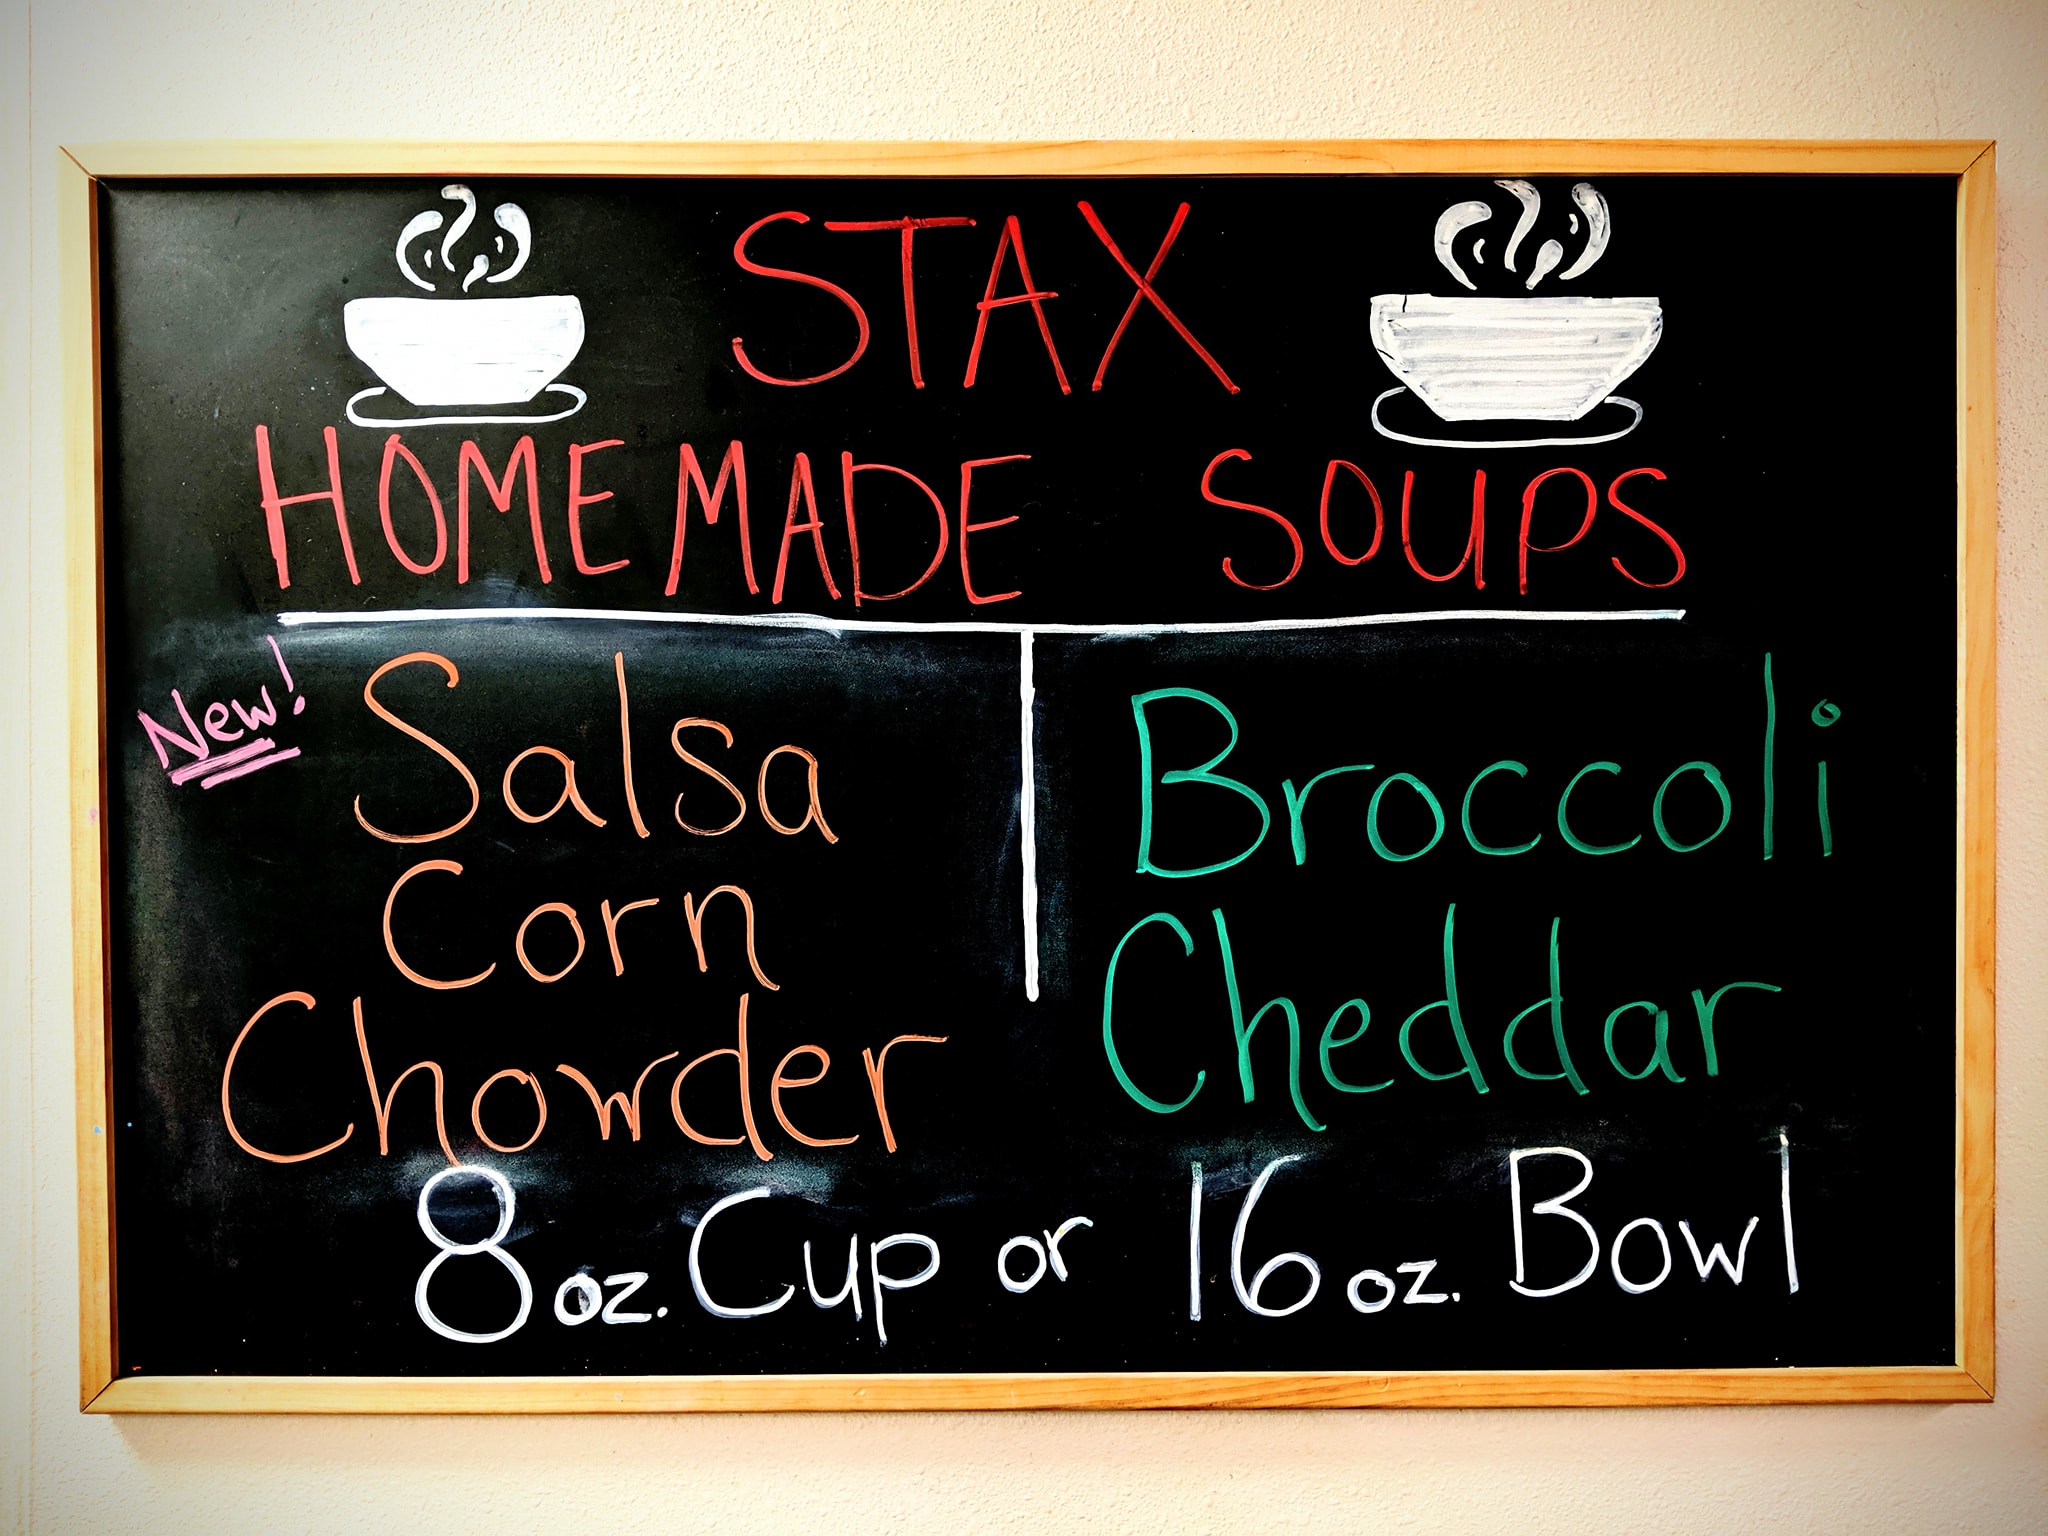 STAX
HOMEMADE SOUPS
New!
Salsa
Corn
Chowder
Broccoli
Cheddar
8 oz. Cup or 16 oz. Bowl